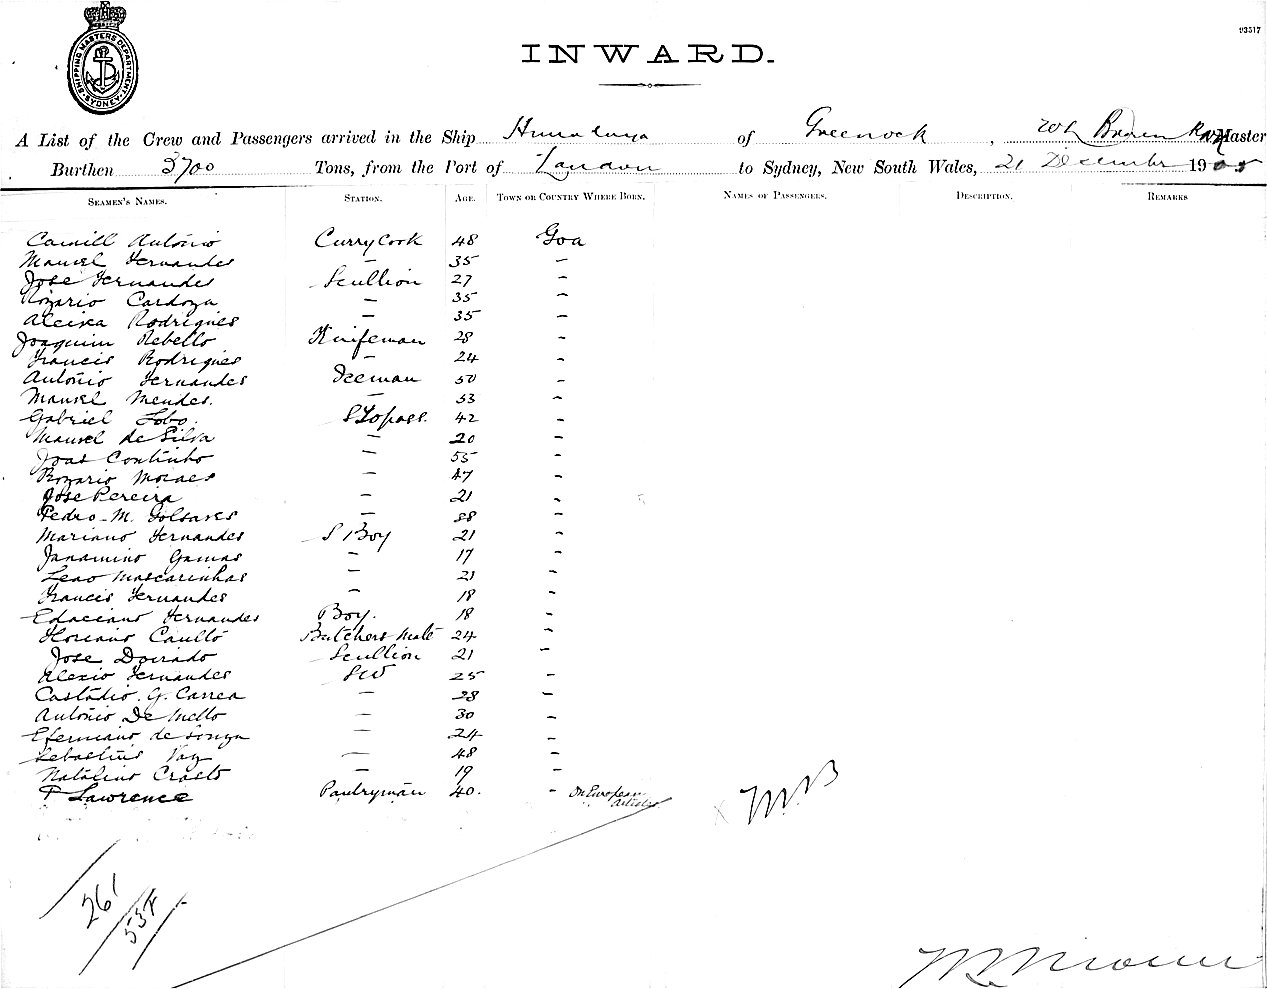 SHIPPING MASTERS DEPARTMENT SYDNEY
93517
INWARD.
A List of the Crew and Passengers arrived in the Ship Himalaya of Greenock, Master
Burthen 3700 Tons, from the Port of London to Sydney, New South Wales, 21 December 1905
SEAMEN'S NAMES. STATION. AGE. TOWN OR COUNTRY WHERE BORN. NAMES OF PASSENGERS. DESCRIPTION. REMARKS
Camill Antonio Curry Cook 48 Goa
Manuel Fernandes – 35 –
Jose Fernandes Scullion 27 –
Rozario Cardoza – 35 –
Aleixa Rodrigues – 35 –
Joaquim Rebello Knifeman 28 –
Francis Rodrigues – 24 –
Antonio Fernandes Iceman 50 –
Manuel Mendes. – 33 –
Gabriel Lobo. S Topass. 42 –
Manuel de Silva – 20 –
Joas Continho – 55 –
Rozario Moraes – 47 –
Jose Pereira – 21 –
Pedro M. – 38 –
Mariano Fernandes S Boy 21 –
Gamas – 17 –
Leao Mascarinhas – 21 –
Francis Fernandes – 18 –
Fernandes Boy. 18 –
Butchers Mate 24 –
Jose Dourado Scullion 21 –
Alexio Fernandes SW 25 –
Castadio. G. Carrea – 38 –
Antonio De Mello – 30 –
de Souza – 24 –
Vaz – 48 –
Natalino Crasto – 19 –
F Lawrence Pantryman 40. – On European Articles
MB
261
537